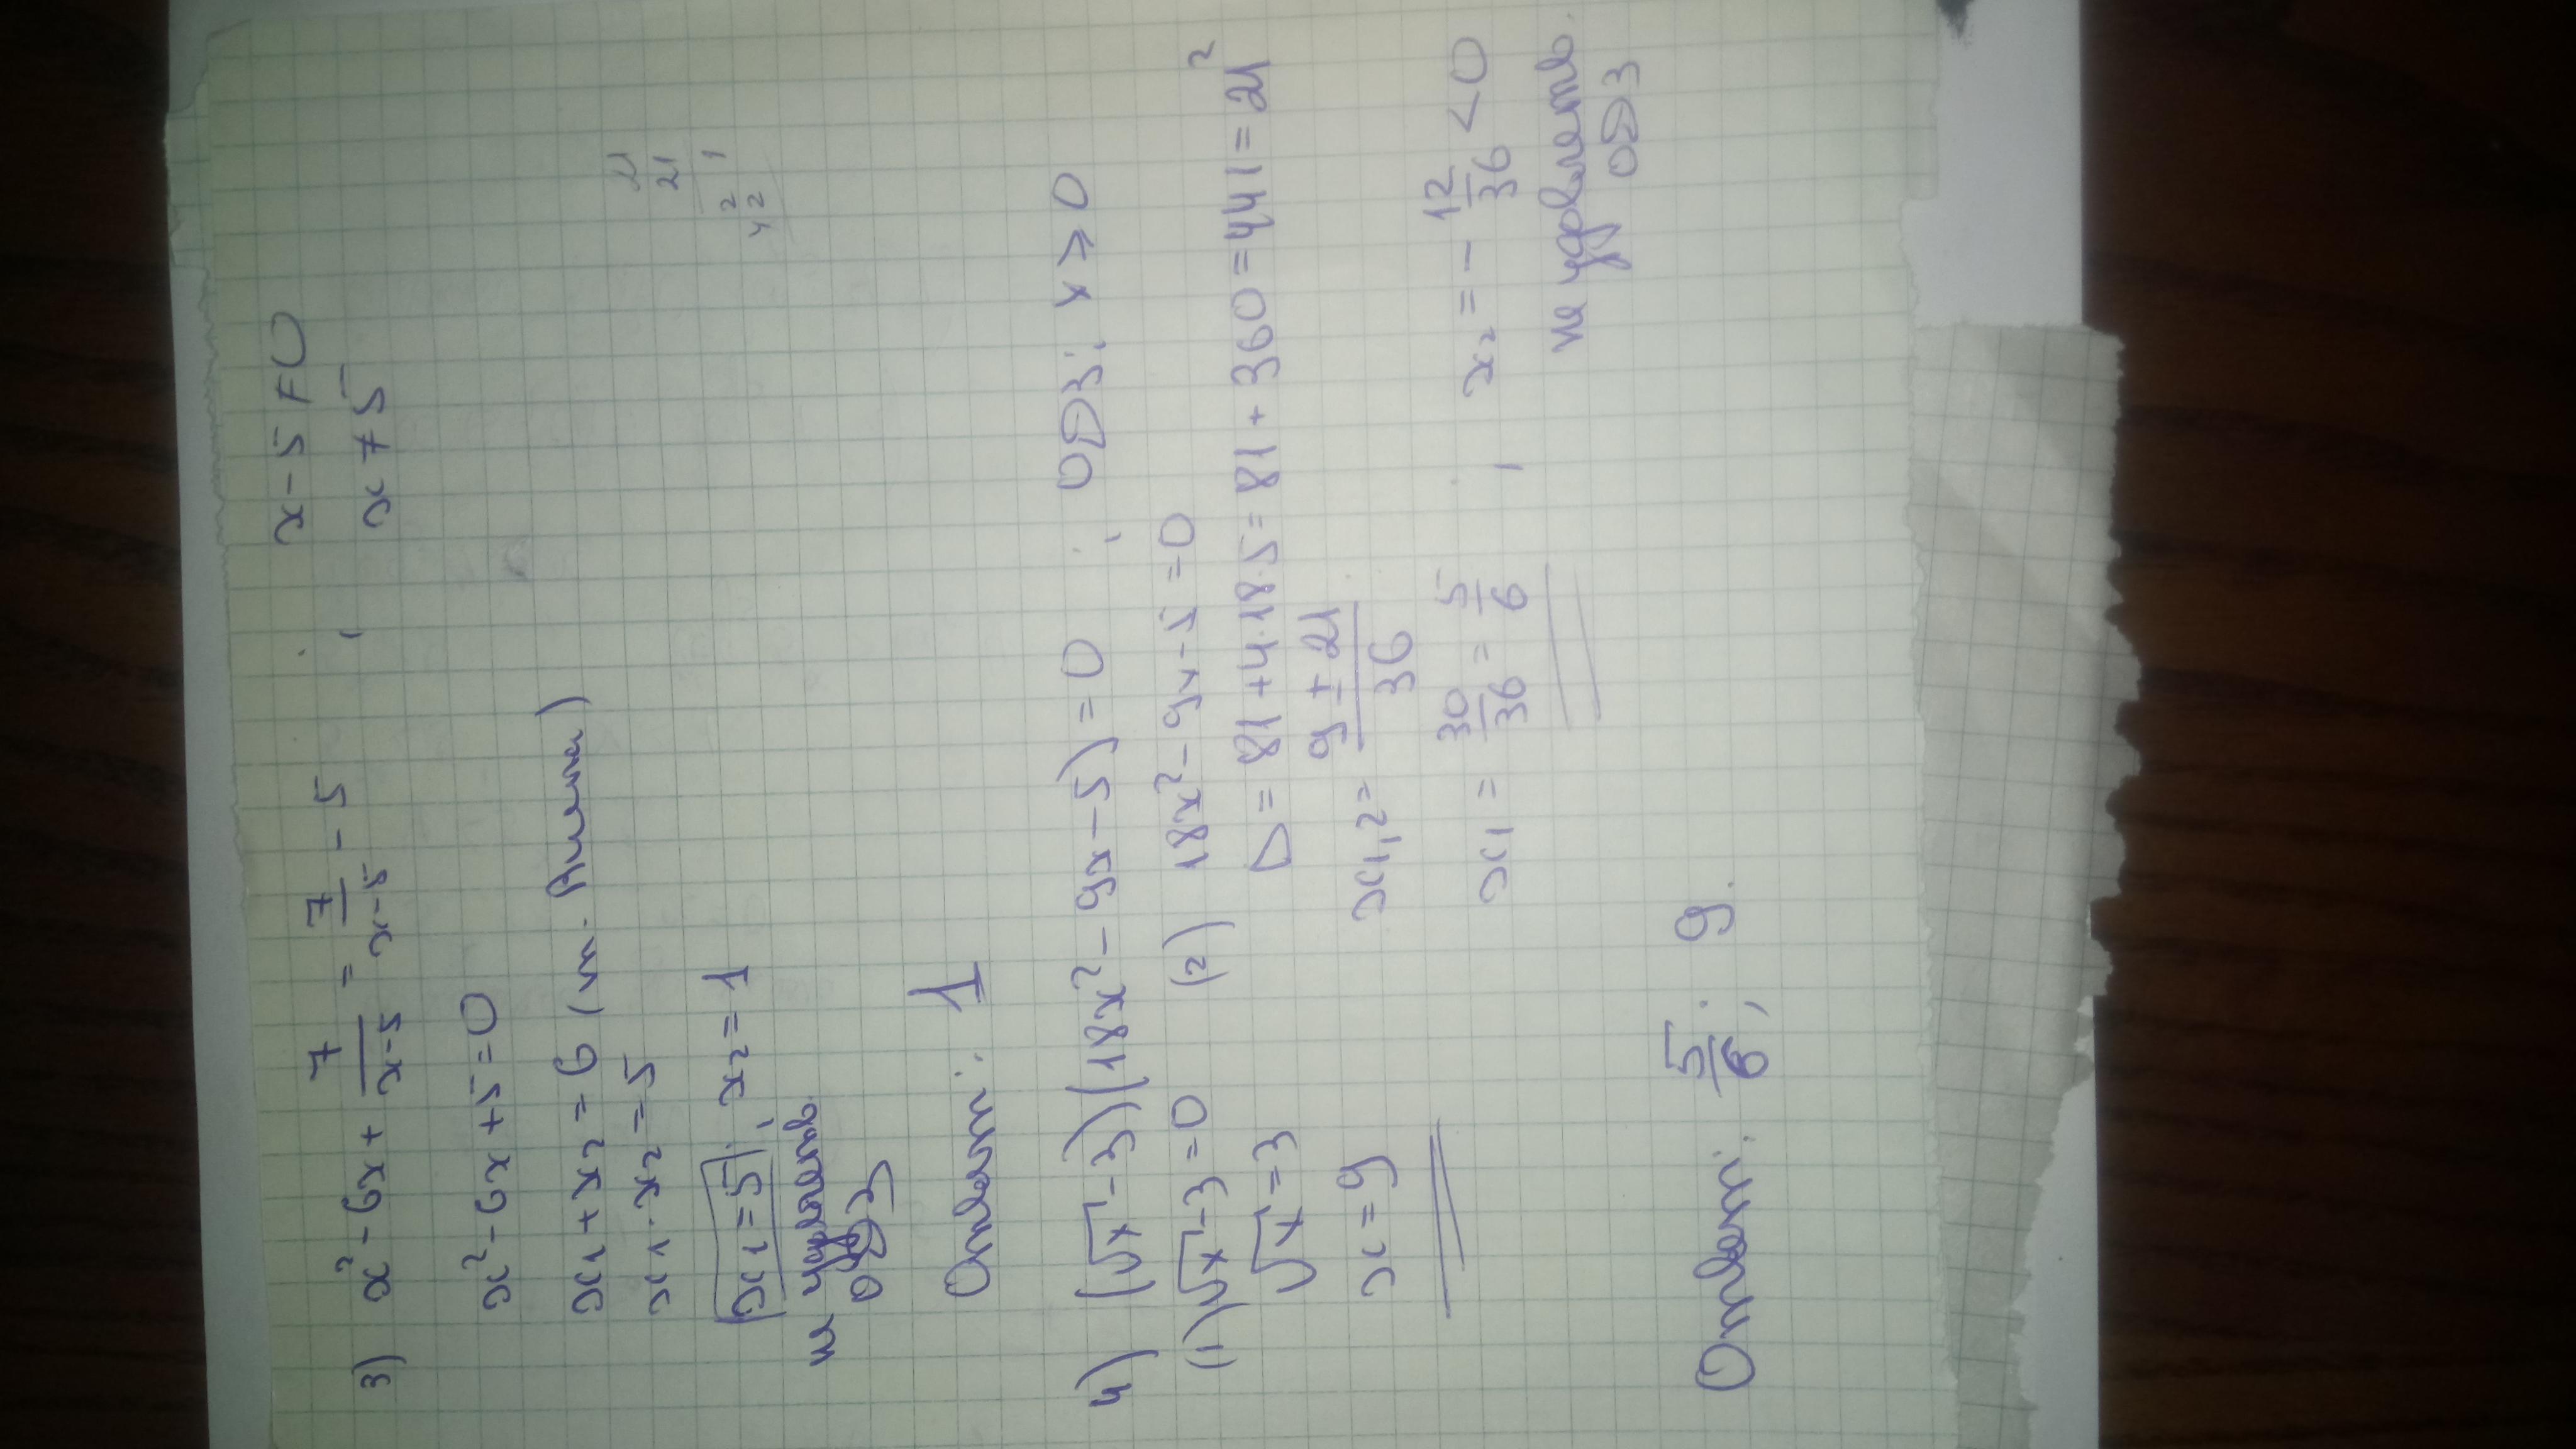 3) x² - 6x + 7/(x-5) = 7/(x-5) - 5 ; x - 5 ≠ 0
x ≠ 5
x² - 6x + 5 = 0
x1 + x2 = 6 (т. Виета)
x1 · x2 = 5
x1 = 5 ; x2 = 1
не удовлетв.
ОДЗ
Ответ: 1
21
21
21
42
4) (√x - 3)(18x² - 9x - 5) = 0 ; ОДЗ: x ≥ 0
(1) √x - 3 = 0 (2) 18x² - 9x - 5 = 0
√x = 3 D = 81 + 4·18·5 = 81 + 360 = 441 = 21²
x = 9 x1,2 = (9 ± 21)/36
x1 = 30/36 = 5/6 , x2 = - 12/36 < 0
не удовлетв.
ОДЗ
Ответ: 5/6 ; 9.